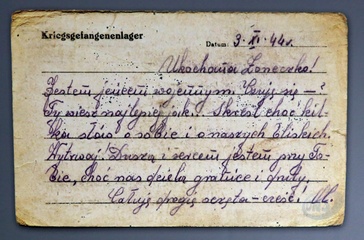 Kriegsgefangenenlager
Datum: 3. XI. 44 r.
Ukochana Żoneczko!
Jestem jeńcem wojennym. Czuję się –
Ty wiesz najlepiej jak. Skreśl choć kil-
ka słów o sobie i o naszych bliskich.
Wytrwaj! Duszą i sercem jestem przy To-
bie, choć nas dzielą granice i druty.
Całuję drogie